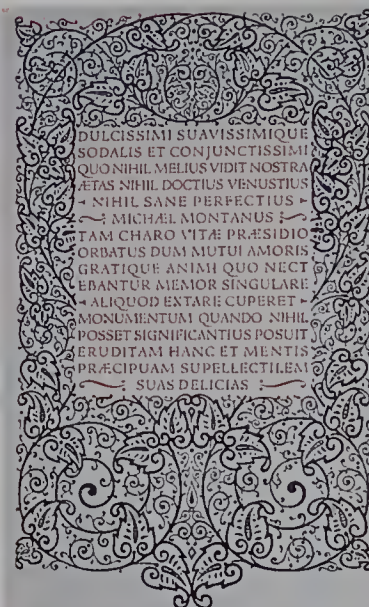 DULCISSIMI SUAVISSIMIQUE
SODALIS ET CONJUNCTISSIMI
QUO NIHIL MELIUS VIDIT NOSTRA
ÆTAS NIHIL DOCTIUS VENUSTIUS
NIHIL SANE PERFECTIUS
MICHAEL MONTANUS
TAM CHARO VITÆ PRÆSIDIO
ORBATUS DUM MUTUI AMORIS
GRATIQUE ANIMI QUO NECT
EBANTUR MEMOR SINGULARE
ALIQUOD EXTARE CUPERET
MONUMENTUM QUANDO NIHIL
POSSET SIGNIFICANTIUS POSUIT
ERUDITAM HANC ET MENTIS
PRÆCIPUAM SUPELLECTILEM
SUAS DELICIAS